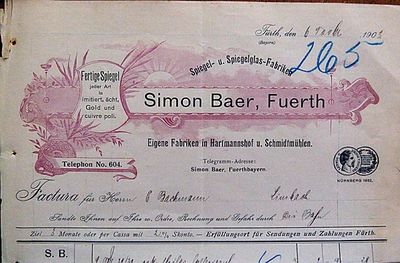 Fürth, den 6 1903
(Bayern)
265
Spiegel- u. Spiegelglas-Fabriken
Fertige Spiegel
jeder Art
in
imitiert, ächt.
Gold und
cuivre poli.
Simon Baer, Fuerth
Eigene Fabriken in Hartmannshof u. Schmidtmühlen.
Telephon No. 604.
Telegramm-Adresse:
Simon Baer, Fuerthbayern.
NÜRNBERG 1882.
Factura für Herrn C Bachmann Limbach
Sandte Ihnen auf Ihre w. Ordre, Rechnung und Gefahr durch Die Bahn
Ziel 3 Monate oder per Cassa mit 2% Skonto. — Erfüllungsort für Sendungen und Zahlungen Fürth.
S. B.